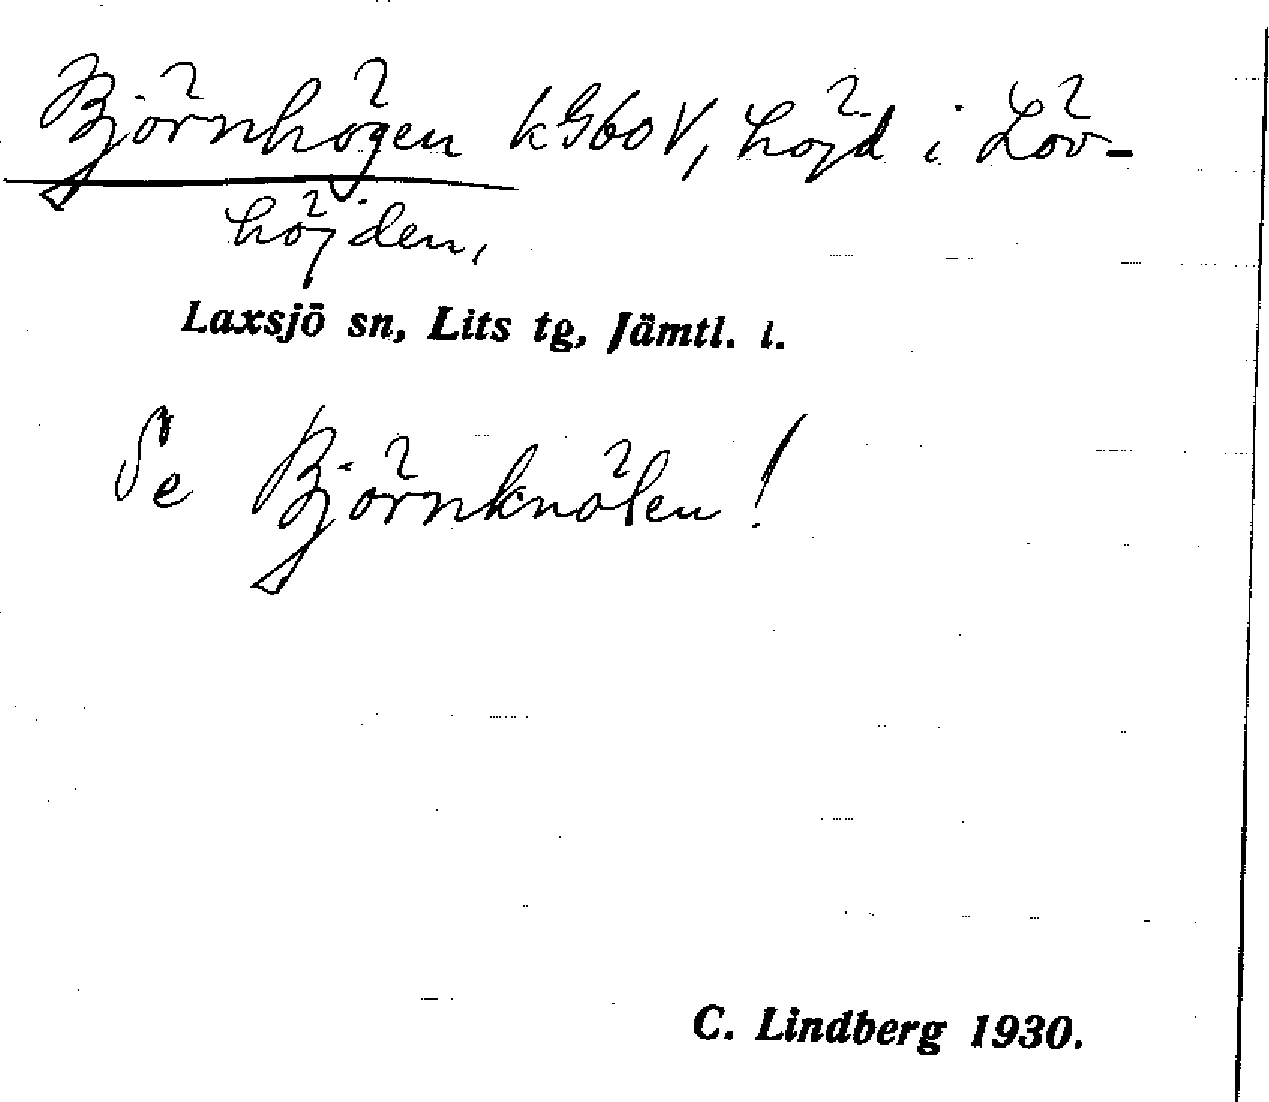 Björnhögen kG60V, höjd i Löv-
höjden,
Laxsjö sn, Lits tg, Jämtl. l.
Se Björnknölen!
C. Lindberg 1930.